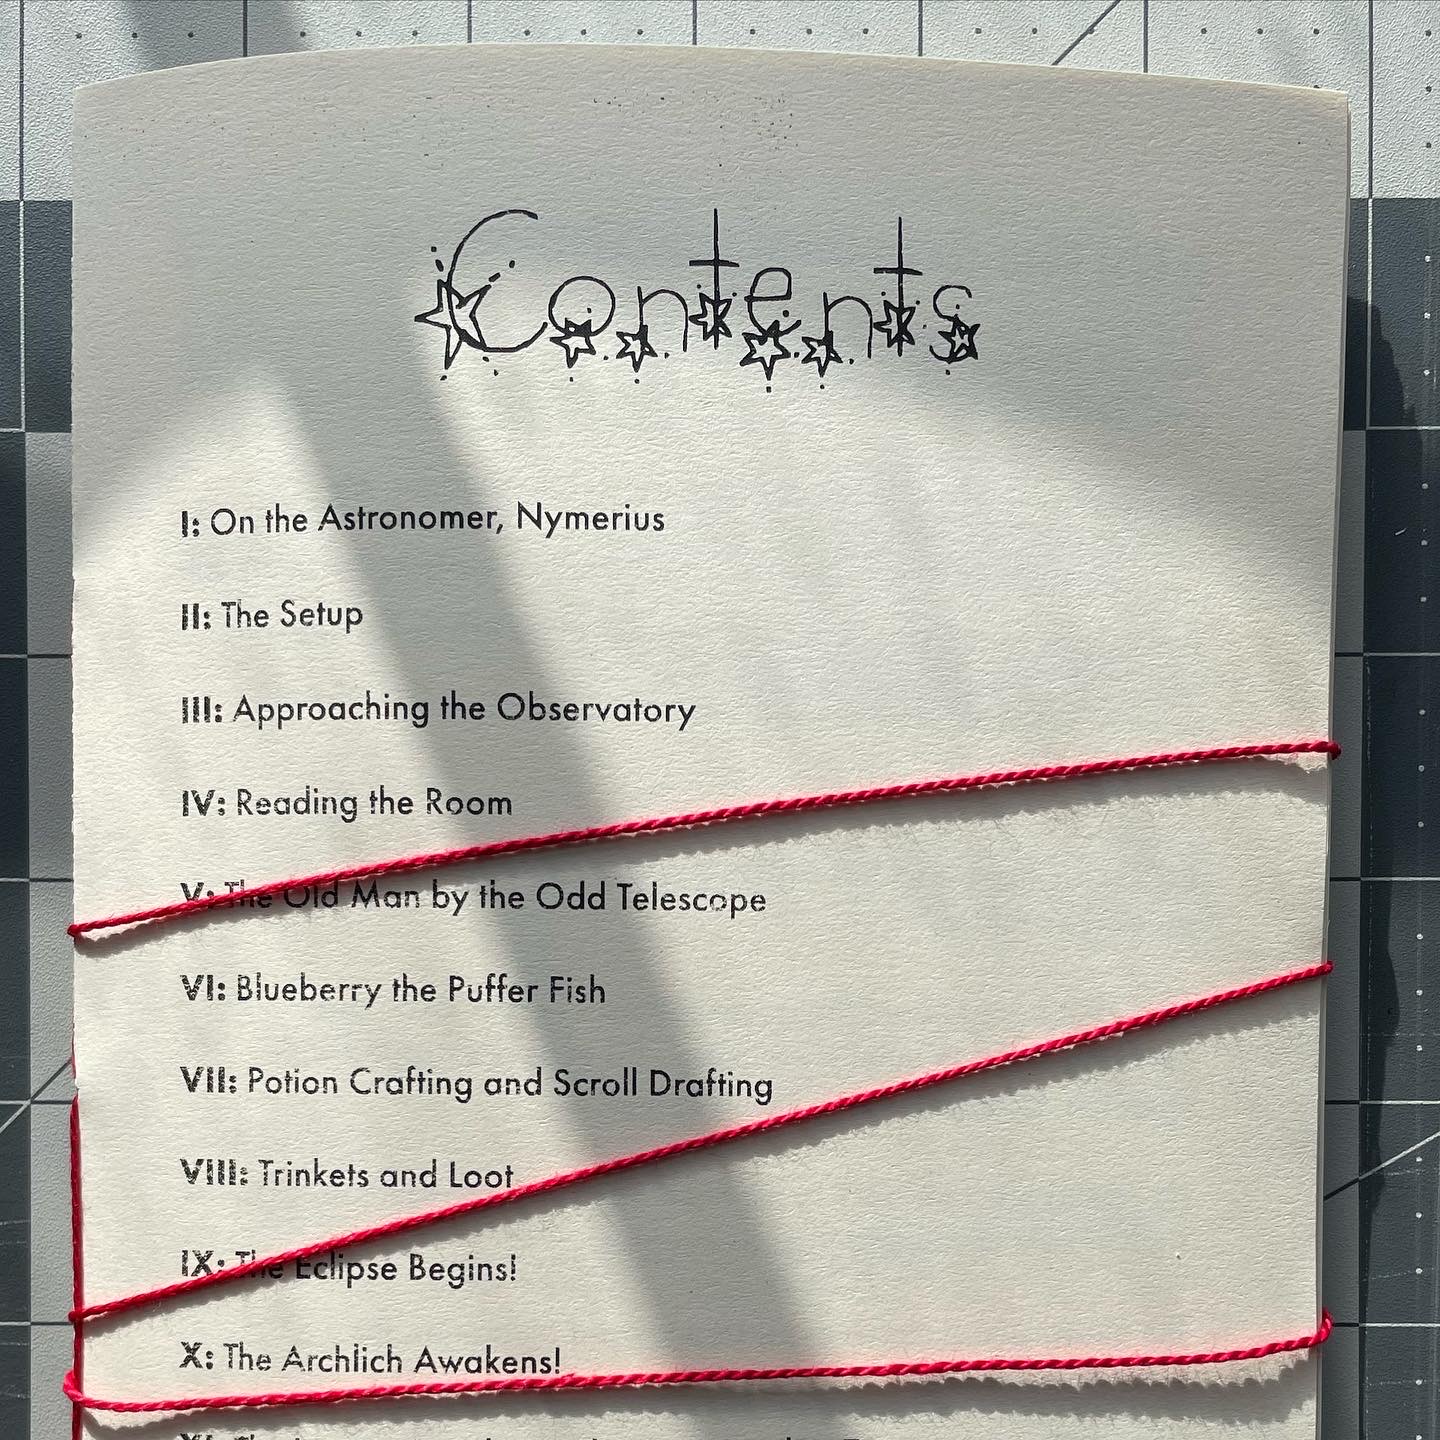 Contents
I: On the Astronomer, Nymerius
II: The Setup
III: Approaching the Observatory
IV: Reading the Room
V: The Old Man by the Odd Telescope
VI: Blueberry the Puffer Fish
VII: Potion Crafting and Scroll Drafting
VIII: Trinkets and Loot
IX: The Eclipse Begins!
X: The Archlich Awakens!